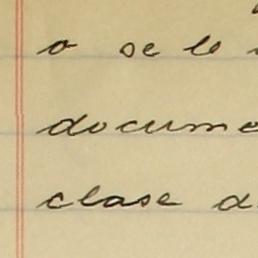 o se le
docume
clase d